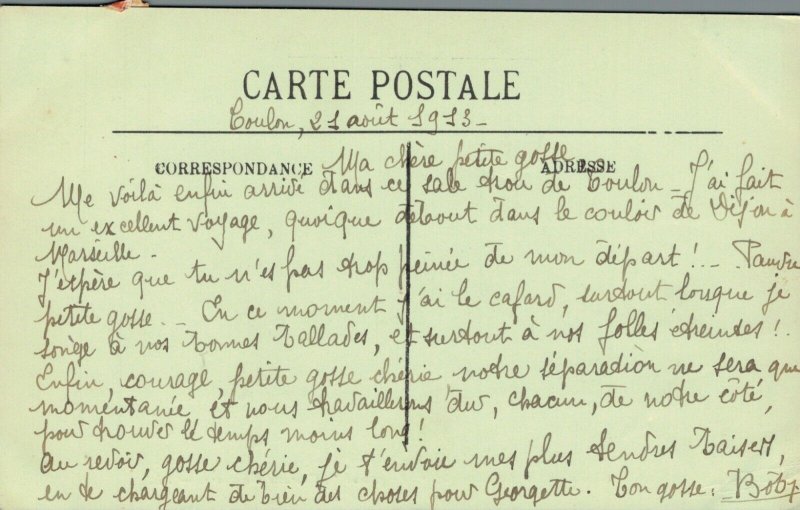 CARTE POSTALE
Toulon, 21 août 1913 -
CORRESPONDANCE
ADRESSE
Ma chère petite gosse
Me voilà enfin arrivé dans ce sale trou de Toulon - J'ai fait
un excellent voyage, quoique debout dans le couloir de Dijon à
Marseille -
J'espère que tu n'es pas trop peinée de mon départ ! - Pauvre
petite gosse - En ce moment j'ai le cafard, surtout lorsque je
songe à nos bonnes ballades, et surtout à nos folles étreintes !
Enfin, courage, petite gosse chérie, notre séparation ne sera que
momentanée et nous travaillerons dur, chacun, de notre côté,
pour trouver le temps moins long !
Au revoir, gosse chérie, je t'envoie mes plus tendres baisers,
en te chargeant de bien des choses pour Georgette. Ton gosse : Boby